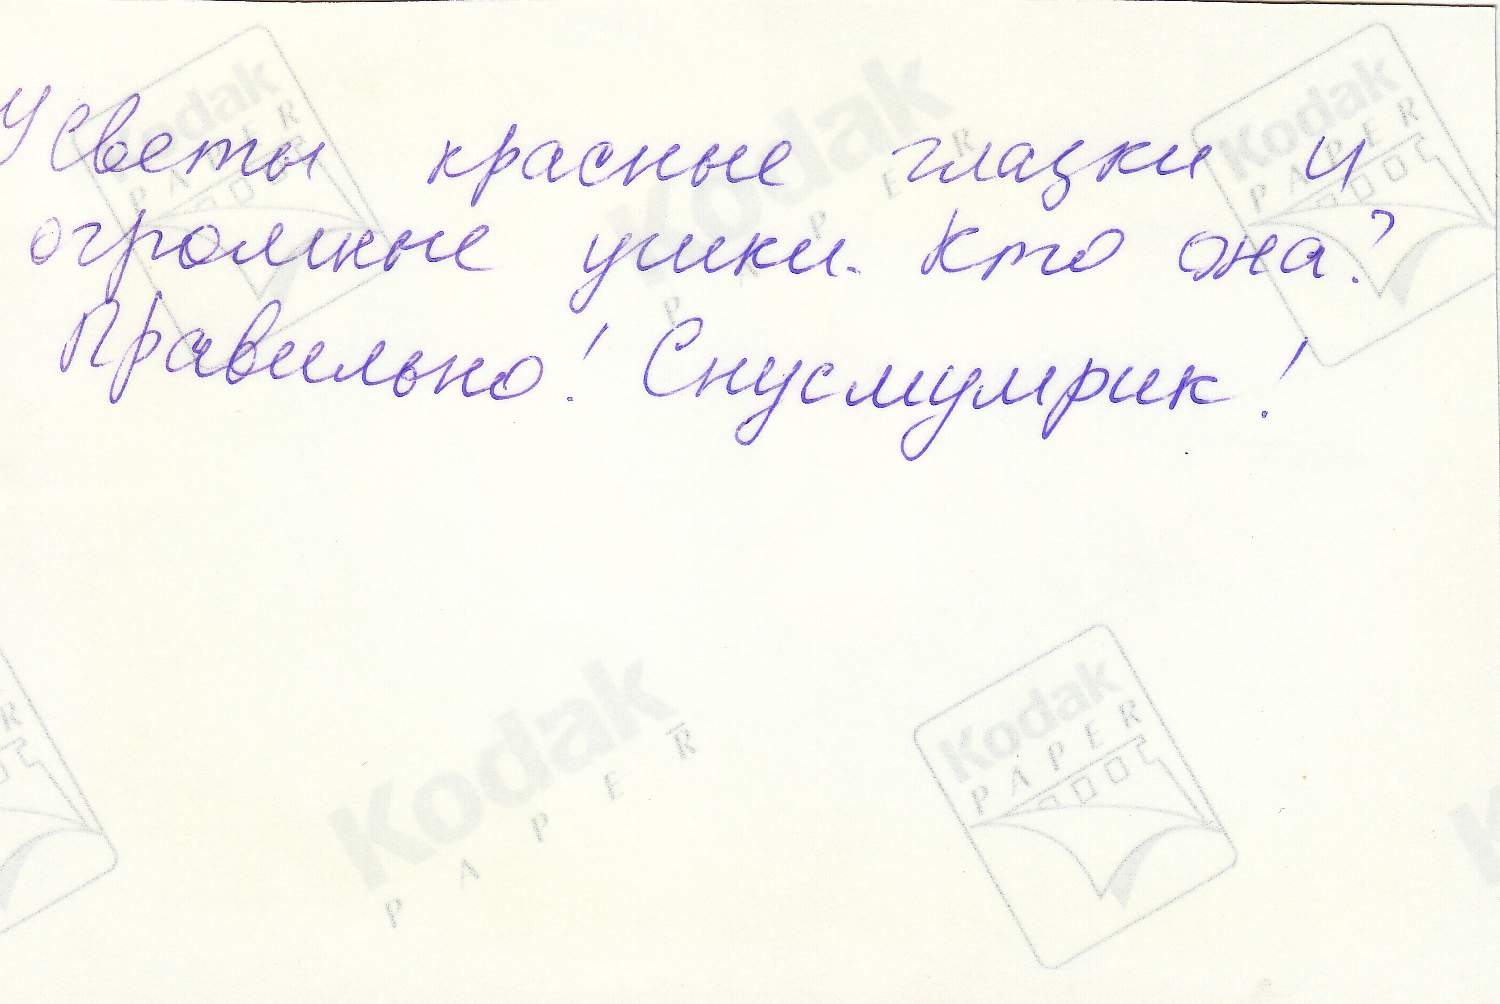 У Светы красные глазки и
огромные ушки. Кто она?
Правильно! Снусмумрик!
Kodak
PAPER
Kodak
PAPER
Kodak
PAPER
Kodak
PAPER
Kodak
PAPER